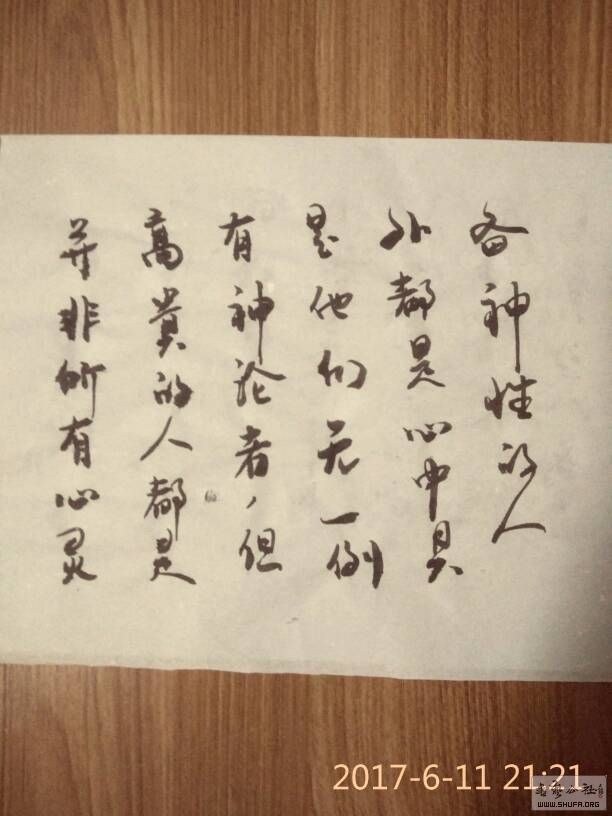 并非所有心灵
高贵的人都是
有神论者，但
是他们无一例
外都是心中具
备神性的人
2017-6-11 21:21
WWW.SHUFA.ORG